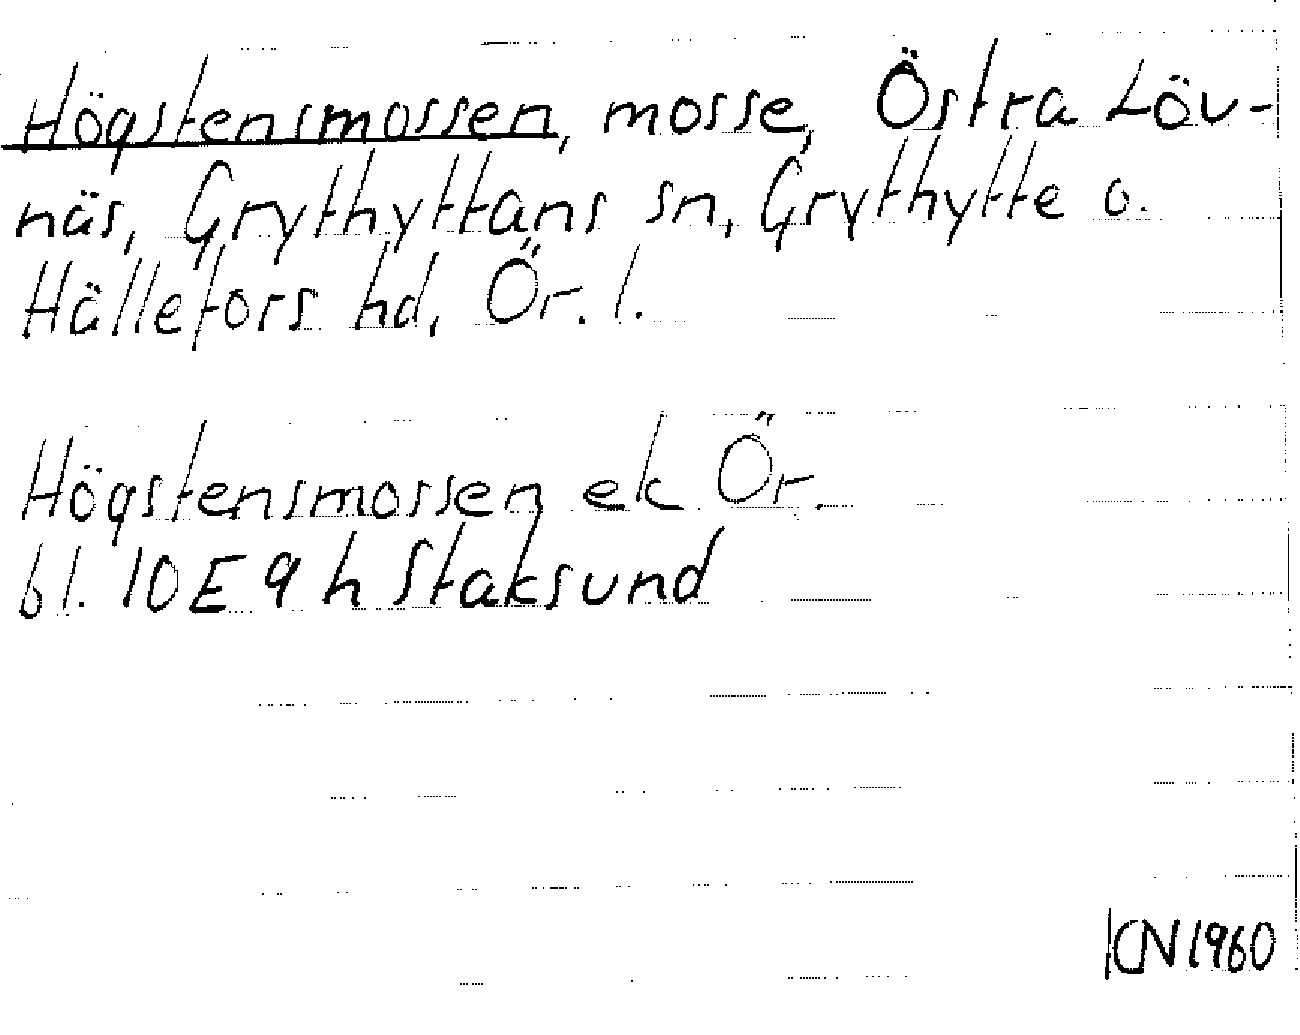 Högstensmossen, mosse, Östra Löv-
näs, Grythyttans sn, Grythytte o.
Hällefors hd, Ör. l.
Högstensmossen ek Ör.
bl. 10E 9h Staksund
KN 1960